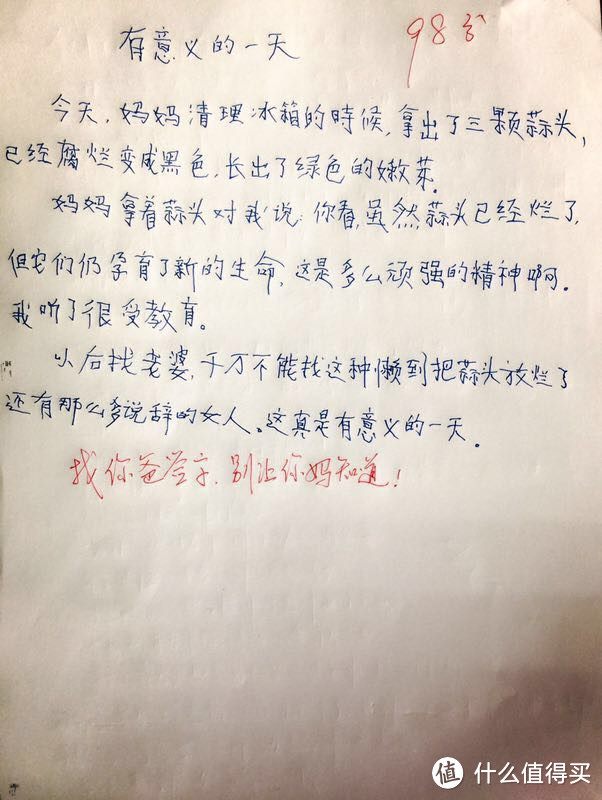 有意义的一天
98分
今天,妈妈清理冰箱的時候,拿出了三颗蒜头,
已经腐烂变成黑色,长出了绿色的嫩芽.
妈妈拿着蒜头对我说:你看,虽然蒜头已经烂了,
但它们仍孕育了新的生命,这是多么顽强的精神啊.
我听了很受教育。
以后找老婆,千万不能找这种懒到把蒜头放烂了
还有那么多说辞的女人。这真是有意义的一天.
找你爸签字,别让你妈知道!
值 什么值得买